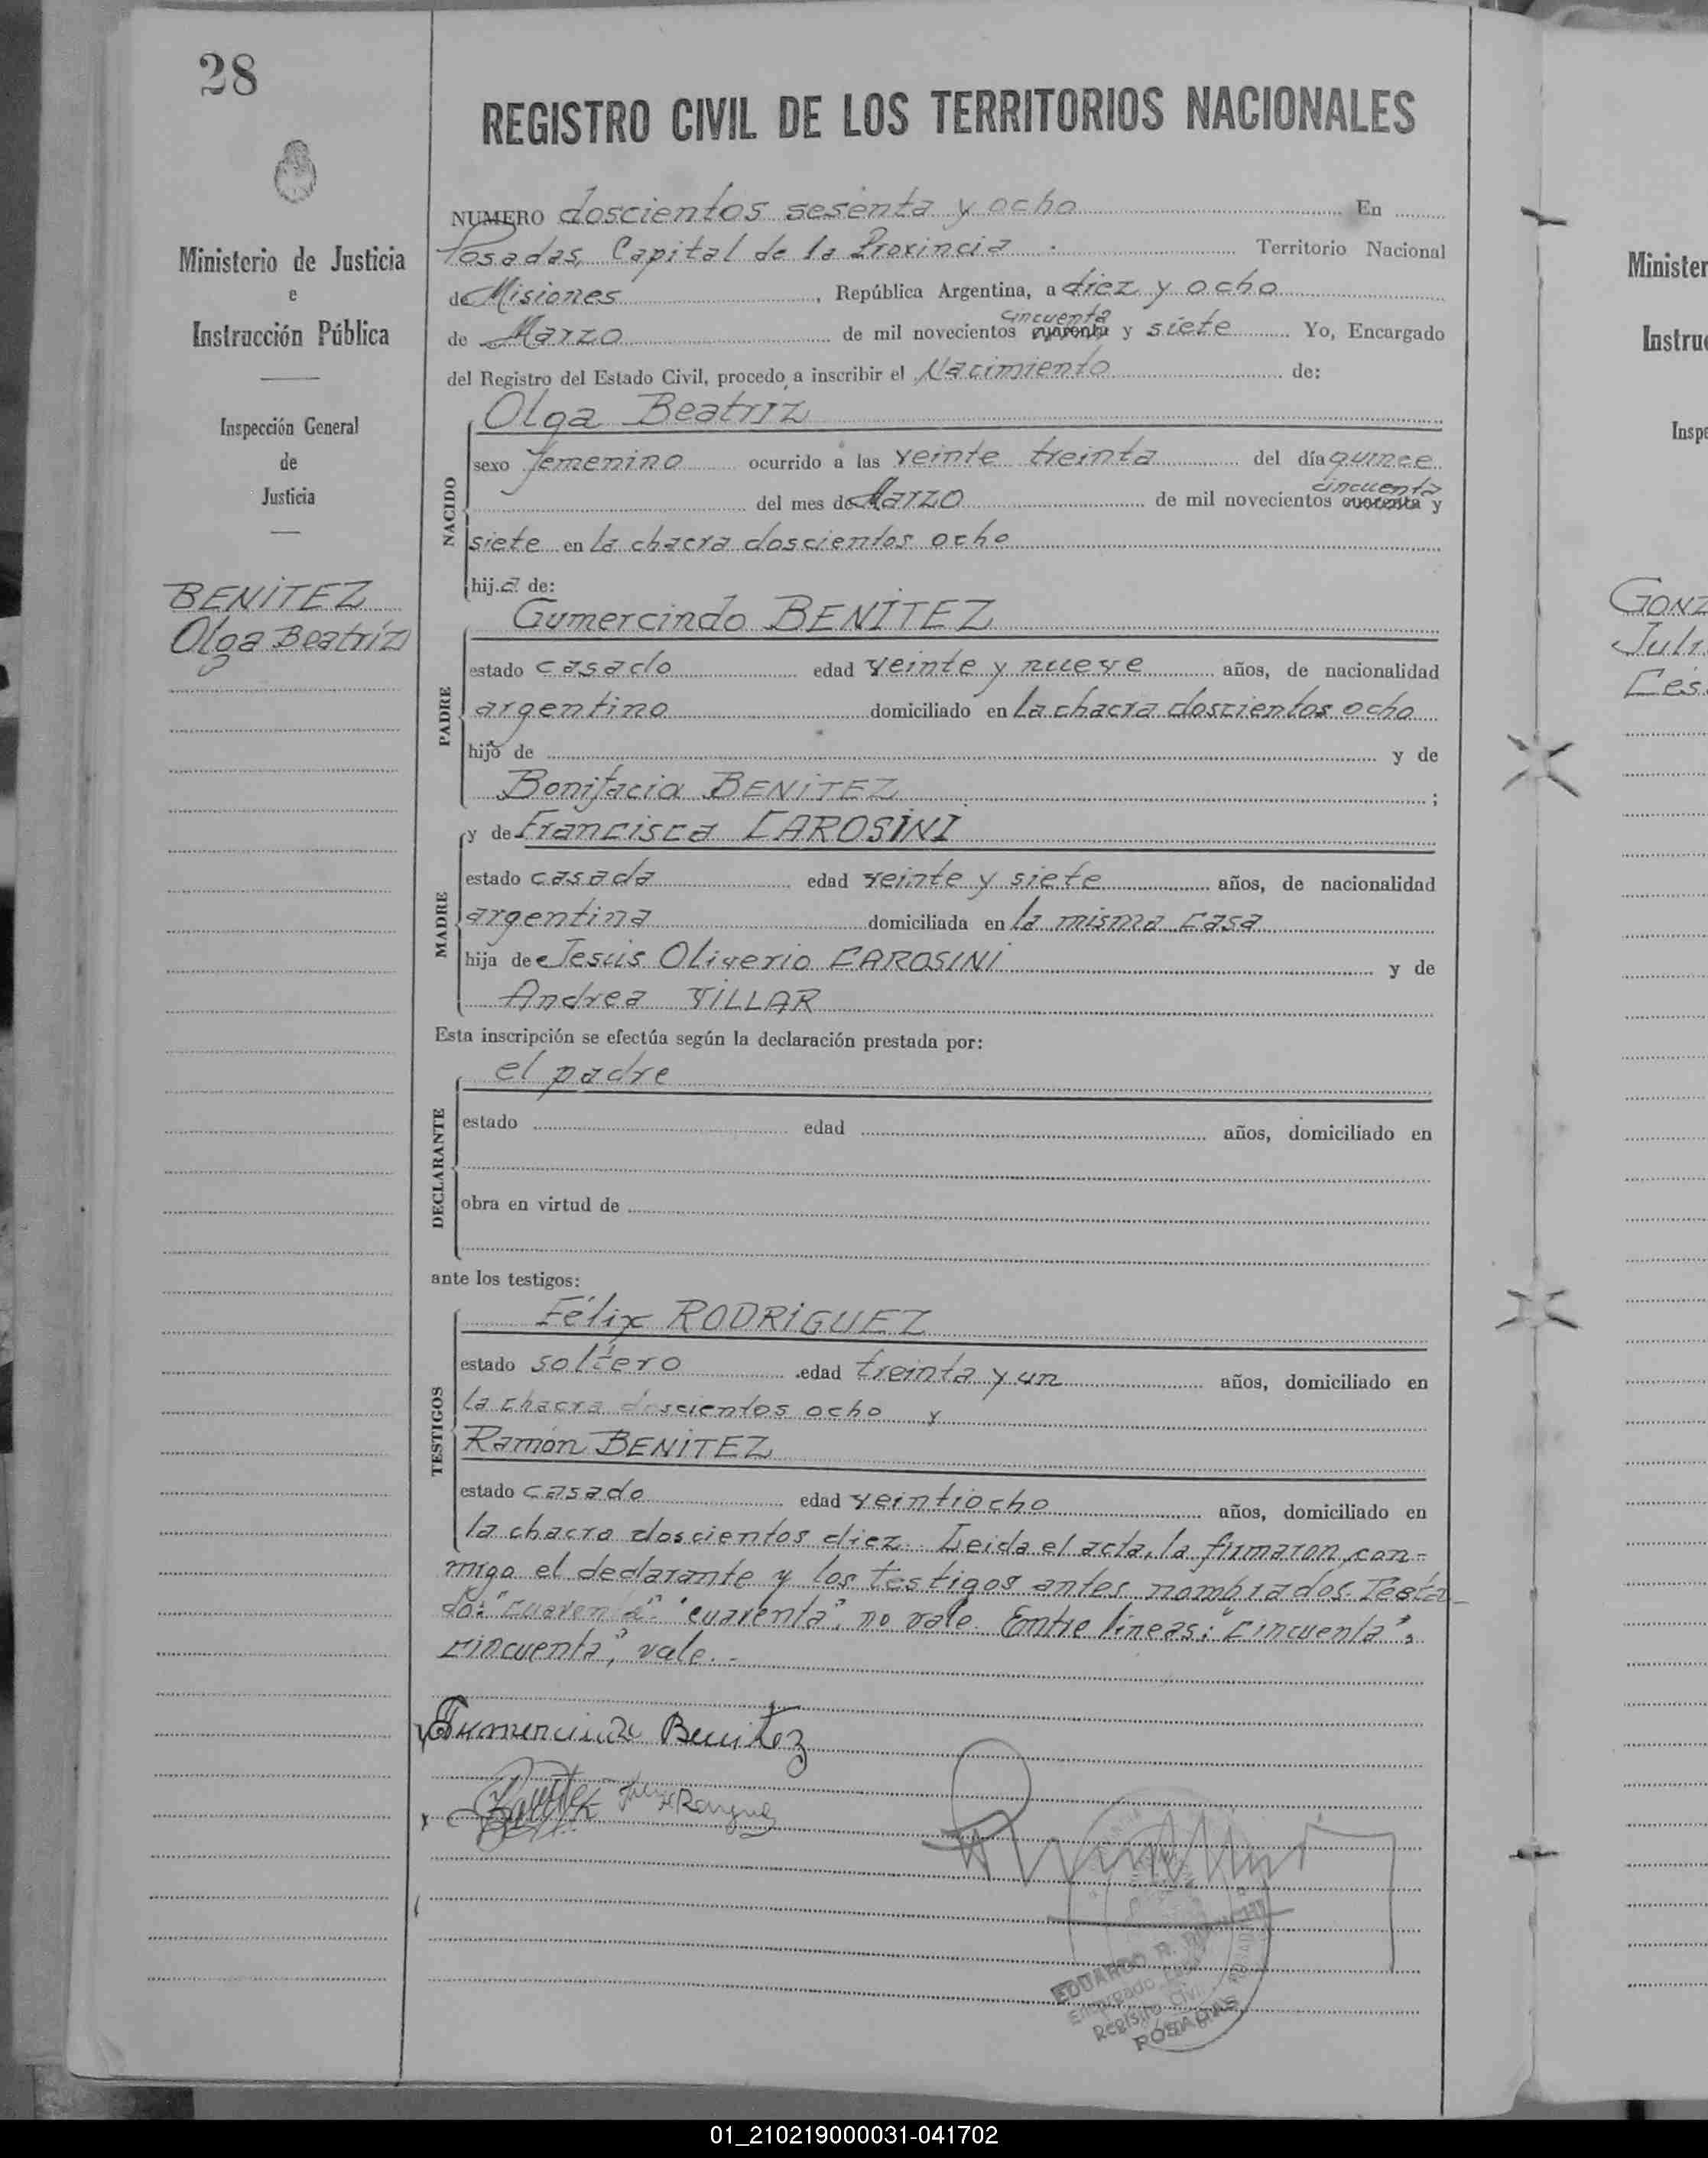 28
REGISTRO CIVIL DE LOS TERRITORIOS NACIONALES
Ministerio de Justicia
e
Instrucción Pública
Inspección General
de
Justicia
BENÍTEZ
Olga Beatríz
NUMERO doscientos sesenta y ocho En
Posadas, Capital de la Provincia Territorio Nacional
de Misiones, República Argentina, a diez y ocho
cincuenta
de Marzo de mil novecientos cuarenta y siete Yo, Encargado
del Registro del Estado Civil, procedo a inscribir el Nacimiento de:
NACIDO
Olga Beatriz
sexo femenino ocurrido a las veinte treinta del día quince
cincuenta
del mes de Marzo de mil novecientos cuarenta y
siete en la chacra doscientos ocho
hij a de:
PADRE
Gumercindo BENÍTEZ
estado casado edad veinte y nueve años, de nacionalidad
argentino domiciliado en la chacra doscientos ocho
hijo de y de
Bonifacia BENÍTEZ ;
MADRE
y de Francisca CAROSINI
estado casada edad veinte y siete años, de nacionalidad
argentina domiciliada en la misma casa
hija de Jesús Oliverio CAROSINI y de
Andrea VILLAR
Esta inscripción se efectúa según la declaración prestada por:
DECLARANTE
el padre
estado edad años, domiciliado en
obra en virtud de
ante los testigos:
TESTIGOS
Félix RODRÍGUEZ
estado soltero edad treinta y un años, domiciliado en
la chacra doscientos ocho y
Ramón BENÍTEZ
estado casado edad veintiocho años, domiciliado en
la chacra doscientos diez. Leida el acta, la firmaron con-
migo el declarante y los testigos antes nombrados. Testa-
do: "cuarenta". "cuarenta", no vale. Entre líneas: "cincuenta".
cincuenta", vale.-
Gumercindo Benitez
EDUARDO R.
Encargado
Registro Civil
POSADAS
Minister
Instruc
Inspe
GONZ
Juli
Ces
01_210219000031-041702